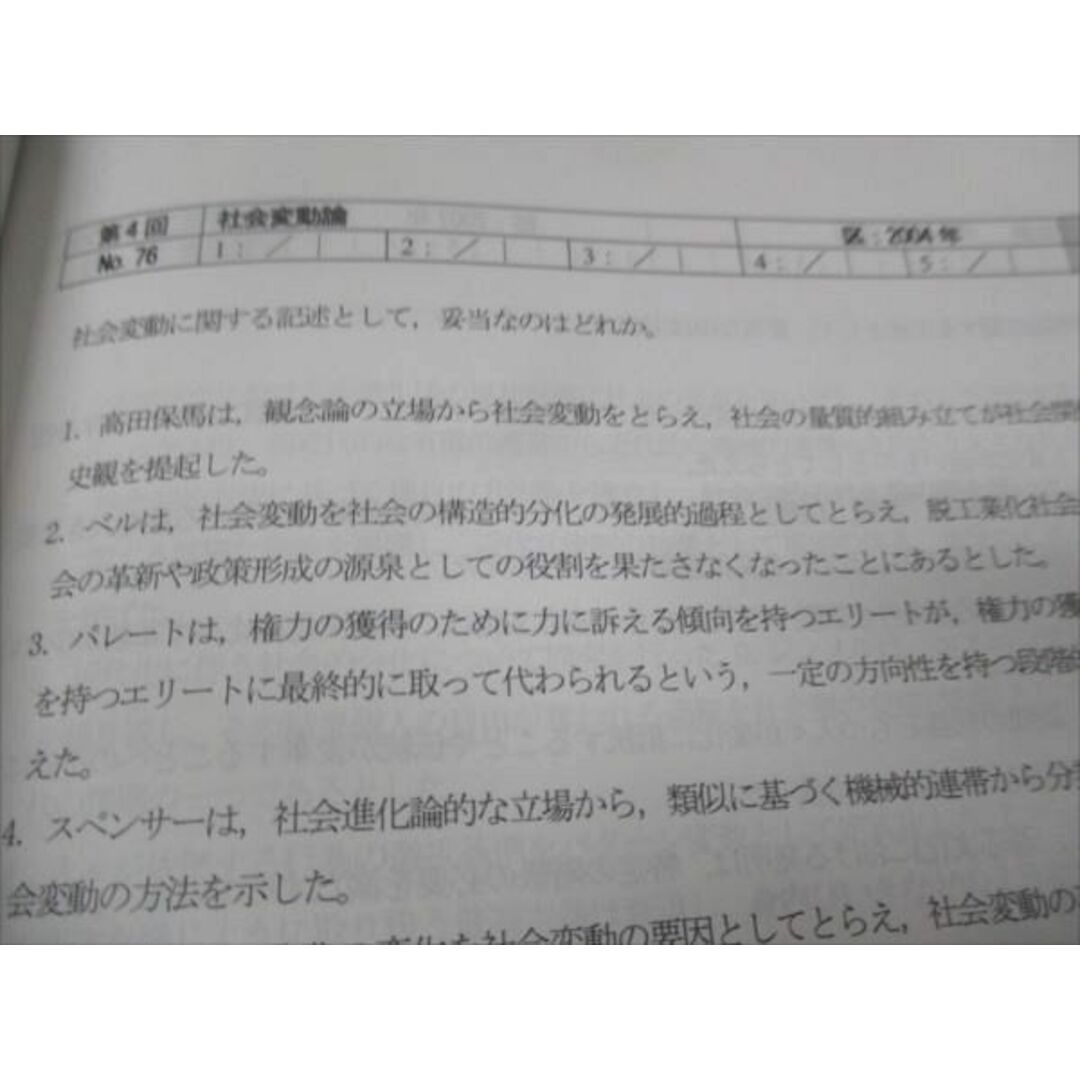 第4回 社会変動論 区:2004年
No. 76 1: / 2: / 3: / 4: / 5: /
社会変動に関する記述として,妥当なのはどれか。
1. 高田保馬は,観念論の立場から社会変動をとらえ,社会の量質的組み立てが社会関
史観を提起した。
2. ベルは,社会変動を社会の構造的分化の発展的過程としてとらえ,脱工業化社会
会の革新や政策形成の源泉としての役割を果たさなくなったことにあるとした。
3. パレートは,権力の獲得のために力に訴える傾向を持つエリートが,権力の獲
を持つエリートに最終的に取って代わられるという,一定の方向性を持つ段階
えた。
4. スペンサーは,社会進化論的な立場から,類似に基づく機械的連帯から分
会変動の方法を示した。
変化を社会変動の要因としてとらえ,社会変動の